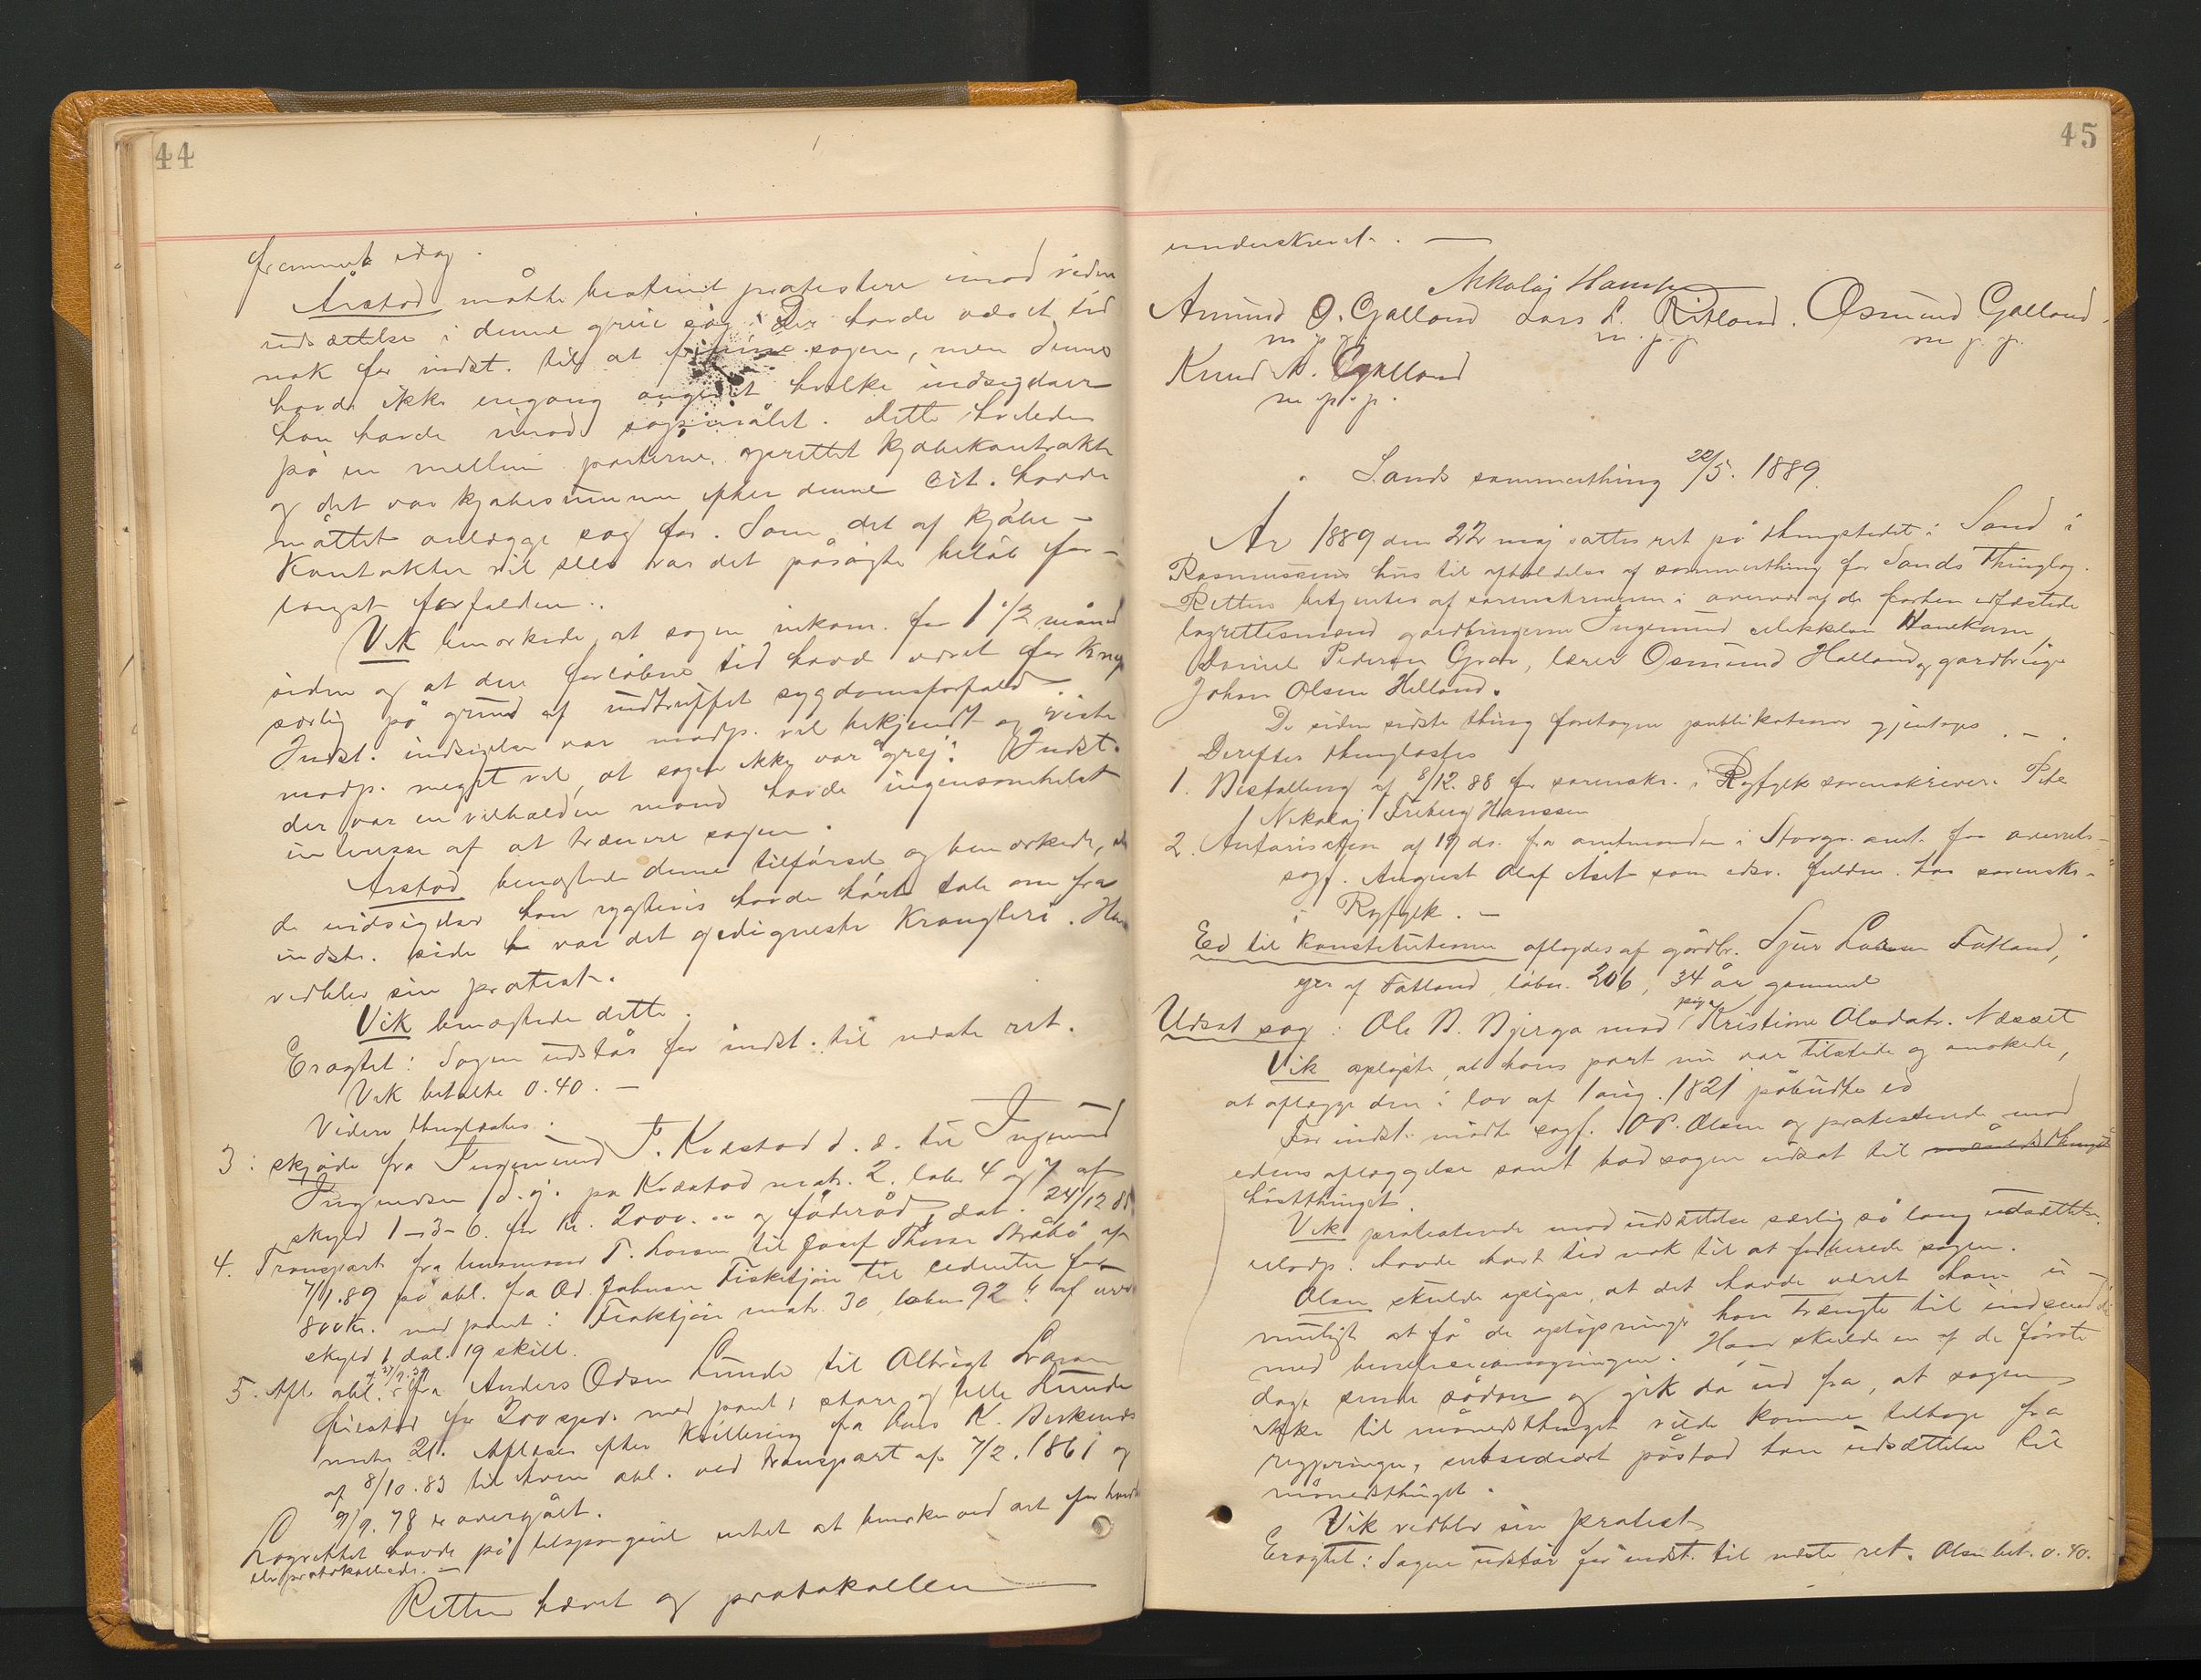 44
fremmet idag.
Årstad måtte bestemt protestere imod videre
udsættelse i denne greie sag. Der havde været tid
nok for indst. til at sagen, men denne
havde ikke engang angivet hvilke indsigelser
han havde imod søgsmålet. Dette
på en mellem parterne oprettet kjøbekontrakt
og det var kjøbesummen efter denne cit. havde
måttet anlægge sag for. Som det af kjøbe-
kontrakten vil sees var det påsøgte beløb for-
længst forfalden.
Vik bemærkede, at sagen inkom for 1 1/2 måned
siden og at den forløbne tid havde været for knap
særlig på grund af indtruffet sygdomsforfald.
Indst. indsigelse var modp. vel bekjendt og vidste
modp. meget vel, at sagen ikke var "grej". Indst.
der var en velholden mand havde ingensomhelst
interesse af at trænere sagen.
Årstad benægtede denne tilførsel og bemærkede, at
de indsigelser han rygtevis havde hørt tale om fra
indst. side var det gedigneste krangleri. Han
vedblev sin protest.
Vik benægtede dette.
Eragtet: Sagen udstår for indst. til næste ret.
Vik betalte 0.40. —
Videre thinglæstes.
3: skjøde fra Ingemund T. Kvæstad d. æ. til Ingemund
Ingemundsen d. y. på Kvæstad matr. 2. løbn. 4 og 7 af
skyld 1-3-6. for kr. 2000. og føderåd, dat. 24/12 88
4. Transport fra husmand T. Larsen til Josef Thorsen af
7/1.89 på obl. fra Od. Johnsen Fisketjøn til cedenten for
800 kr. med pant i Fisketjøn matr. 30, løbn. 92 af
skyld 1 dal. 19 skill.
5. Afl. obl. af 27/9.39 fra Anders Odsen Lunde til Albrigt Larsen
for 200 spd. med pant i store og lille Lunde
matr. 21. Aflæses efter kvittering fra Lars K.
af 8/10.83 til hvem obl. ved transport af 7/2.1861 og
9/9.78 er overgået.
Lagrettet havde på tilspørgsel intet at bemærke ved det for hvad
der protokolleret. —
Retten hævet og protokollen
45
underskrevet. —
Nikolaj Hanssen
Amund O. Gjalland Lars L. Ritland. Osmund Gjalland.
m. p. p. m. p. p. m. p. p.
Knud A. Gjalland
m. p. p.
Sands sommerthing 22/5. 1889.
År 1889 den 22 maj sattes ret på thingstedet i Sand i
Rasmussens hus til afholdelse af sommerthing for Sands thinglag.
Retten betjentes af sorenskriveren i overvær af de forhen edfæstede
lagrettesmænd gardbrugerne Ingemund Mikkelsen Hanekam,
Daniel Pedersen Grov, lærer Osmund Halland og gardbruger
Johan Olsen Helland.
De siden sidste thing foretagne publikationer gjentages. —
Derefter thinglæstes
1. Bestalling af 8/12.88 for sorenskr. i Ryfylke sorenskriveri Peter
Nikolaj Friberg Hanssen
2. Autorisation af 19 ds. fra amtmanden i Stavgr. amt for overrets-
sagf. August Olaf som edsv. fuldm. hos sorenskr.
i Ryfylke. —
Ed til konstitutionen aflagdes af gårdbr. Sjur Larsen Fatland,
yrs af Fatland, løbn. 206, 34 år gammel
Udsat sag: Ole B. Bjerga mod pige Kristine Olsdatr. Næsset
Vik oplyste, at hans part nu var tilstede og ønskede,
at aflægge den i lov af 1 aug. 1821 påbudte ed
For indst. mødte sagf. O.P. Olsen og protesterede mod
edens aflæggelse samt bad sagen udsat til månedsthinget
høstthinget.
Vik protesterede mod udsættelse særlig så lang udsættelse.
Modp. havde havt tid nok til at forberede sagen.
Olsen skulde oplyse, at det havde været ham u-
muligt at få de oplysninger han trængte til indsendt
med beneficieansøgningen. Han skulde en af de første
dage sende sådan og gik da ud fra, at sagen
ikke til månedsthinget vilde komme tilbage fra
regjeringen, subsidiært påstod han udsættelse til
månedsthinget.
Vik vedblev sin protest
Eragtet: Sagen udstår for indst. til næste ret. Olsen bet. 0.40.